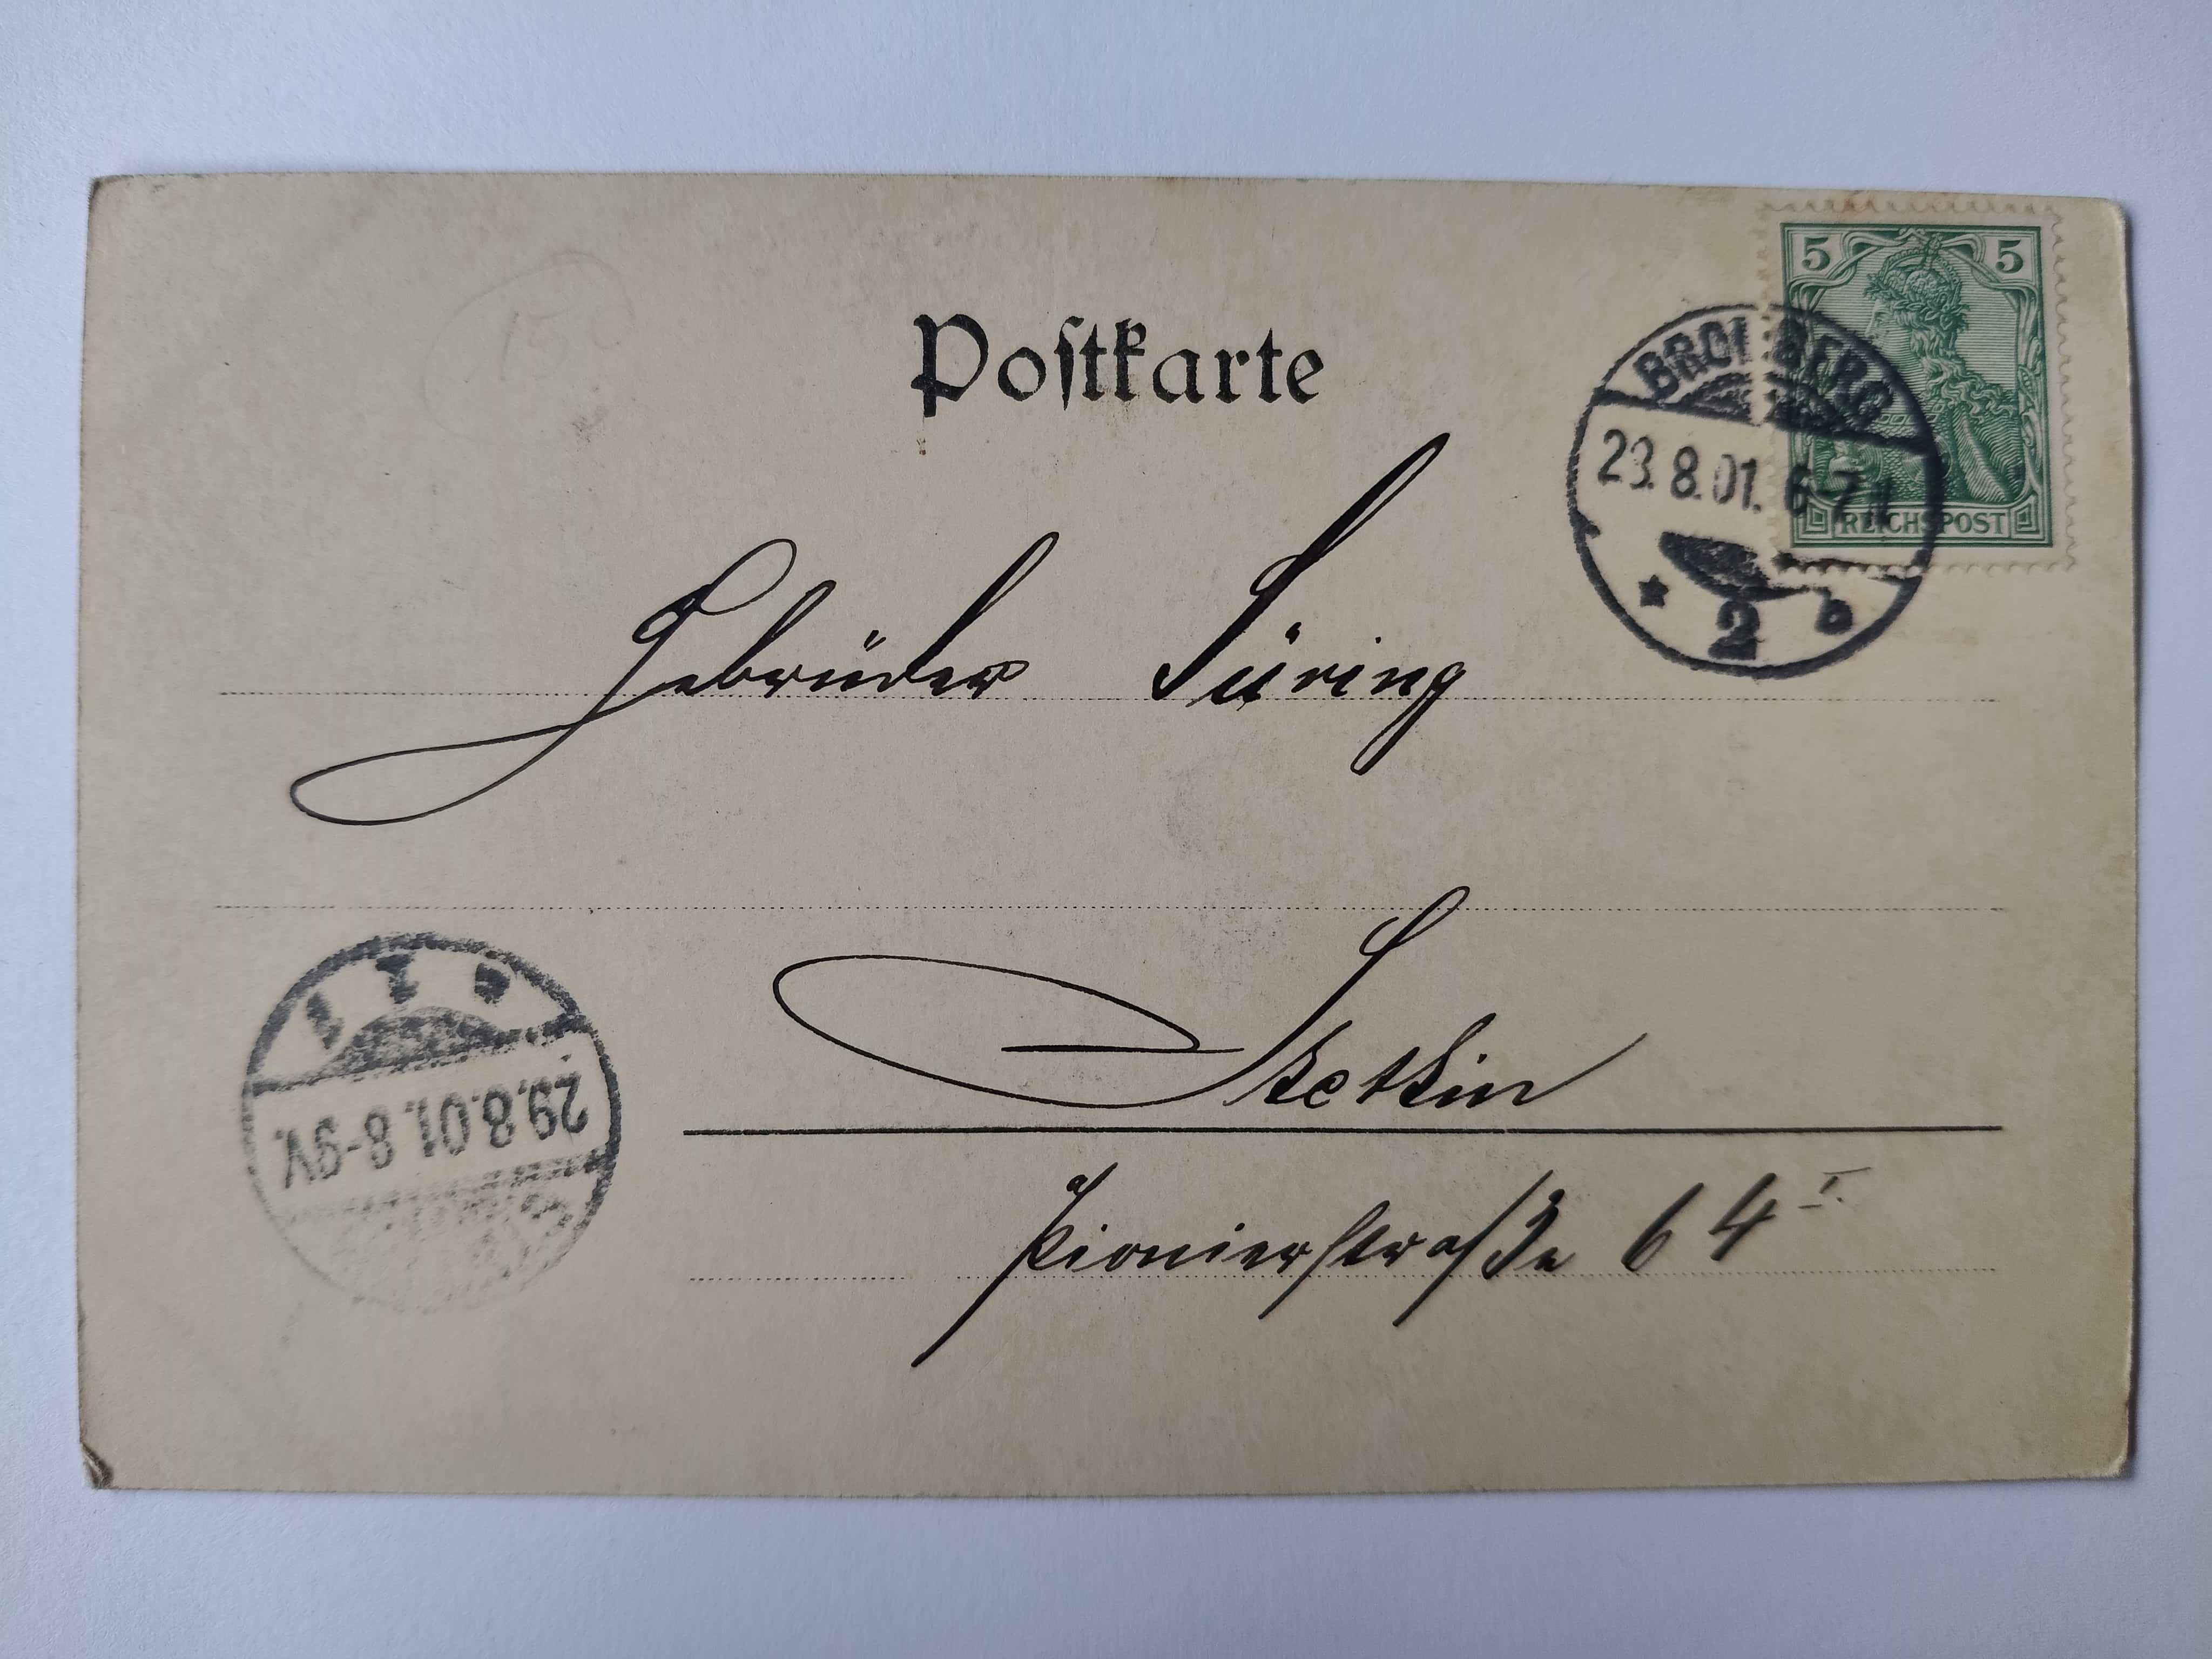 5 5
REICHSPOST
Postkarte
BROMBERG
23.8.01. 6-7
* 2 b
Gebrüder Süring
* 1 c
29.8.01. 8-9V.
Stettin
Pionierstraße 64 I.